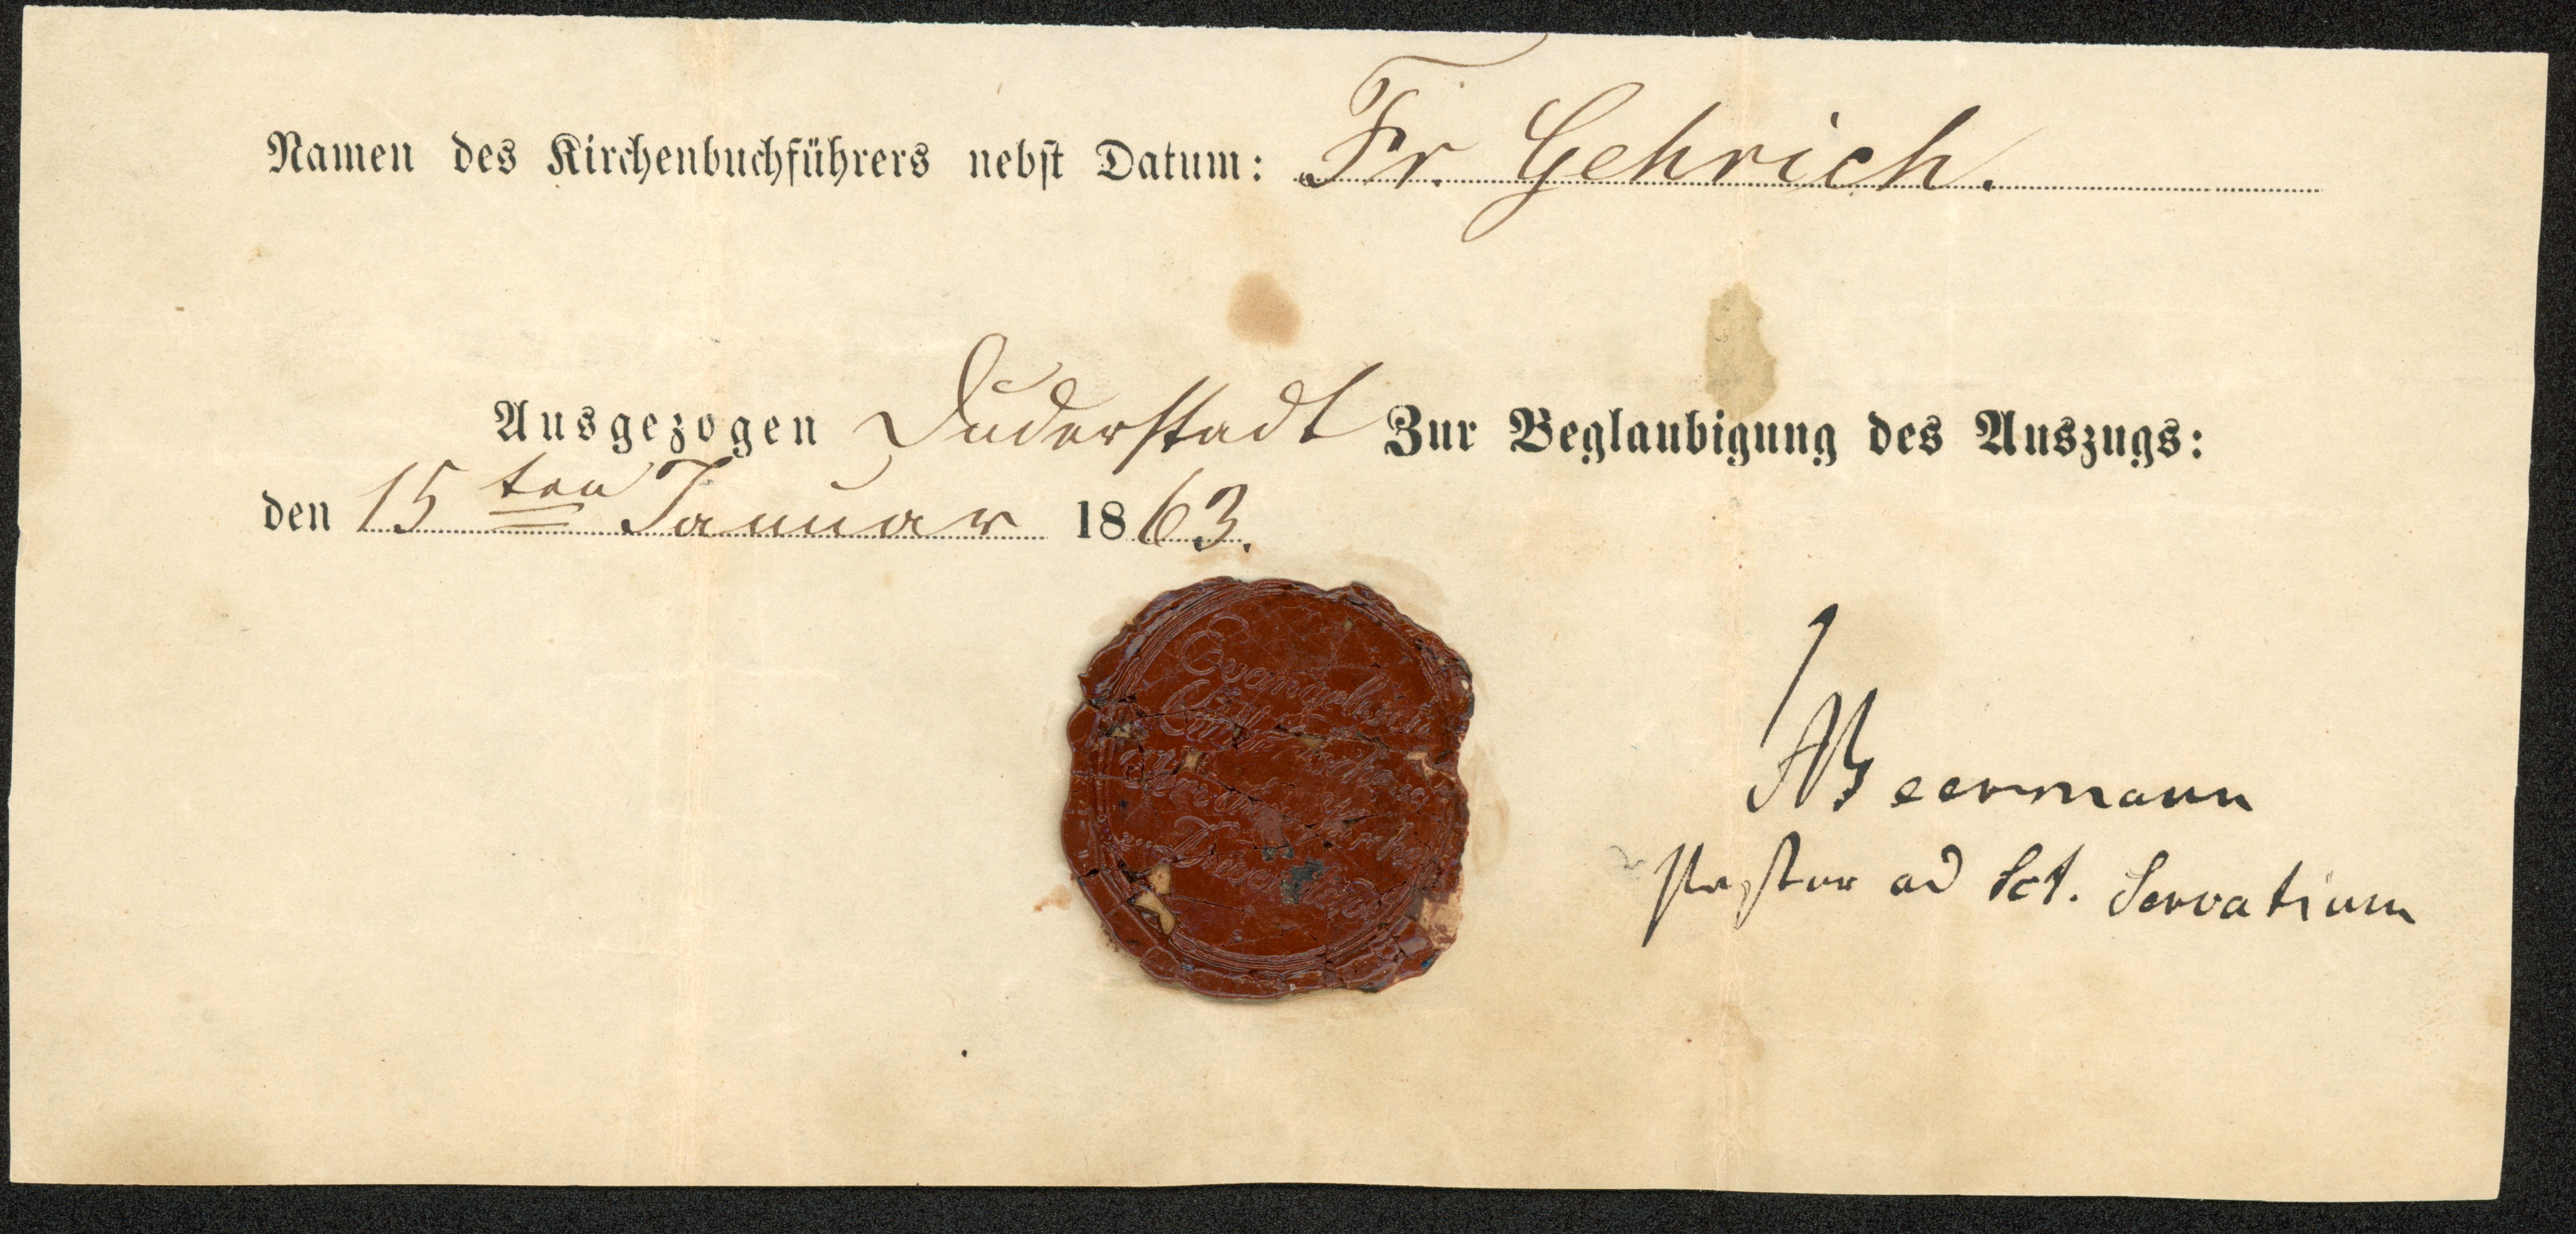 Namen des Kirchenbuchführers nebst Datum: Fr. Gehrich.
Ausgezogen Duderstadt Zur Beglaubigung des Auszugs:
den 15ten Januar 1863.
Evangelisch
Beermann
Pastor ad Sct. Servatium